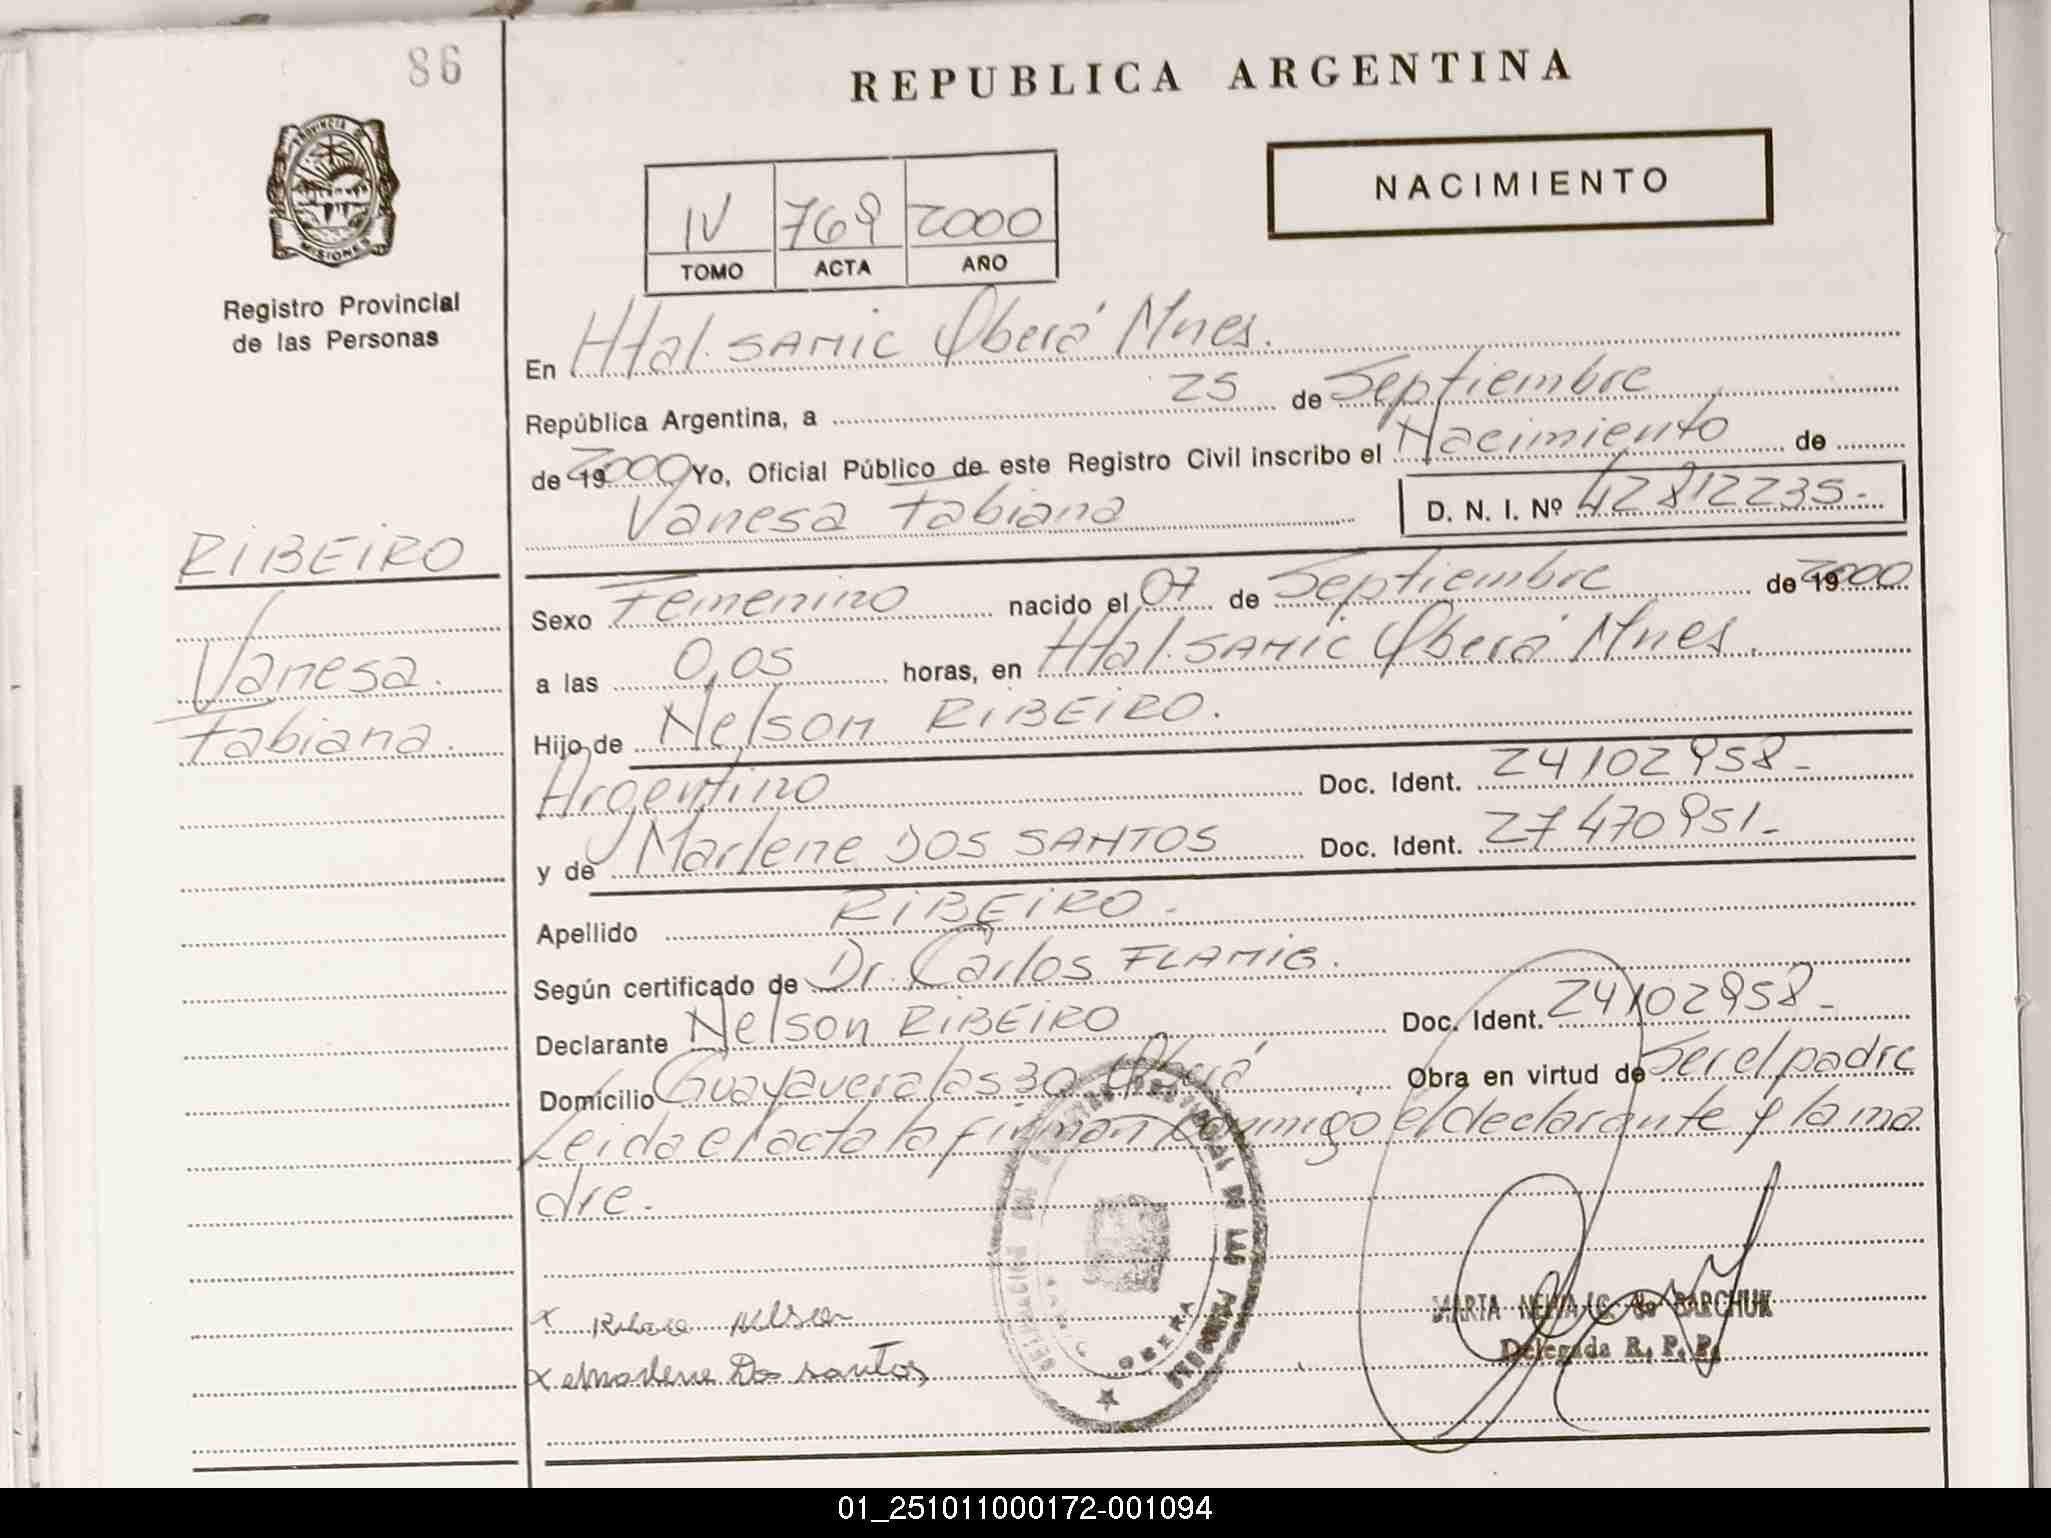 86
REPUBLICA ARGENTINA
PROVINCIA DE
MISIONES
NACIMIENTO
IV 769 2000
TOMO ACTA AÑO
Registro Provincial
de las Personas
En Htal. SAMIC Oberá Mnes.
República Argentina, a 25 de Septiembre
de 19 2000 Yo, Oficial Público de este Registro Civil inscribo el Nacimiento de
Vanesa Fabiana D. N. I. Nº 42812235.-
RIBEIRO
Vanesa.
Fabiana.
Sexo Femenino nacido el 07 de Septiembre de 19 2000
a las 0,05 horas, en Htal. SAMIC Oberá Mnes.
Hijo de Nelson RIBEIRO.
Argentino Doc. Ident. 24102958-
y de Marlene DOS SANTOS Doc. Ident. 27470951.-
Apellido RIBEIRO.-
Según certificado de Dr. Carlos FLAMIG.
Declarante Nelson RIBEIRO Doc. Ident. 24102958-
Domicilio Guayaveralas 30 Oberá Obra en virtud de Ser el padre
Leida el acta la firman conmigo el declarante y la ma
dre.-
x Nelson
x Marlene Dos santos
OBERA
MARTA de BARCHUK
Delegada R. P. P.
01_251011000172-001094